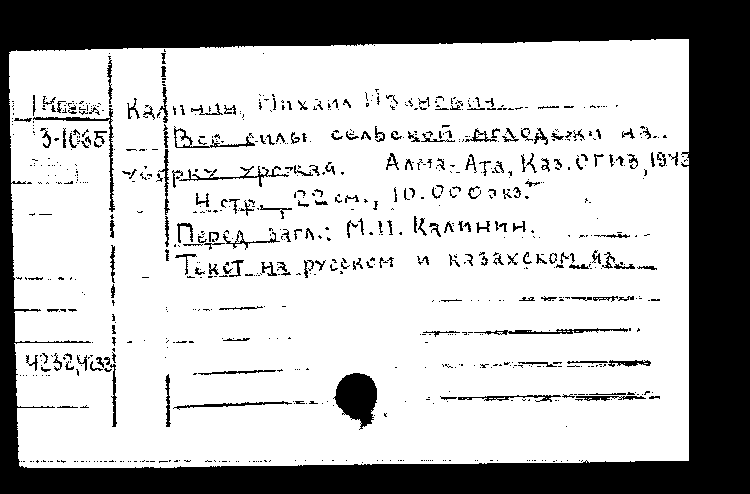 Казах Калинин, Михаил Иванович.
3-1065 Все силы сельской молодежи на
уборку урожая. Алма-Ата, Каз.ОГИЗ, 1943
4 стр., 22 см., 10.000 экз.
Перед загл.: М.И. Калинин.
Текст на русском и казахском яз.
4232, 4233